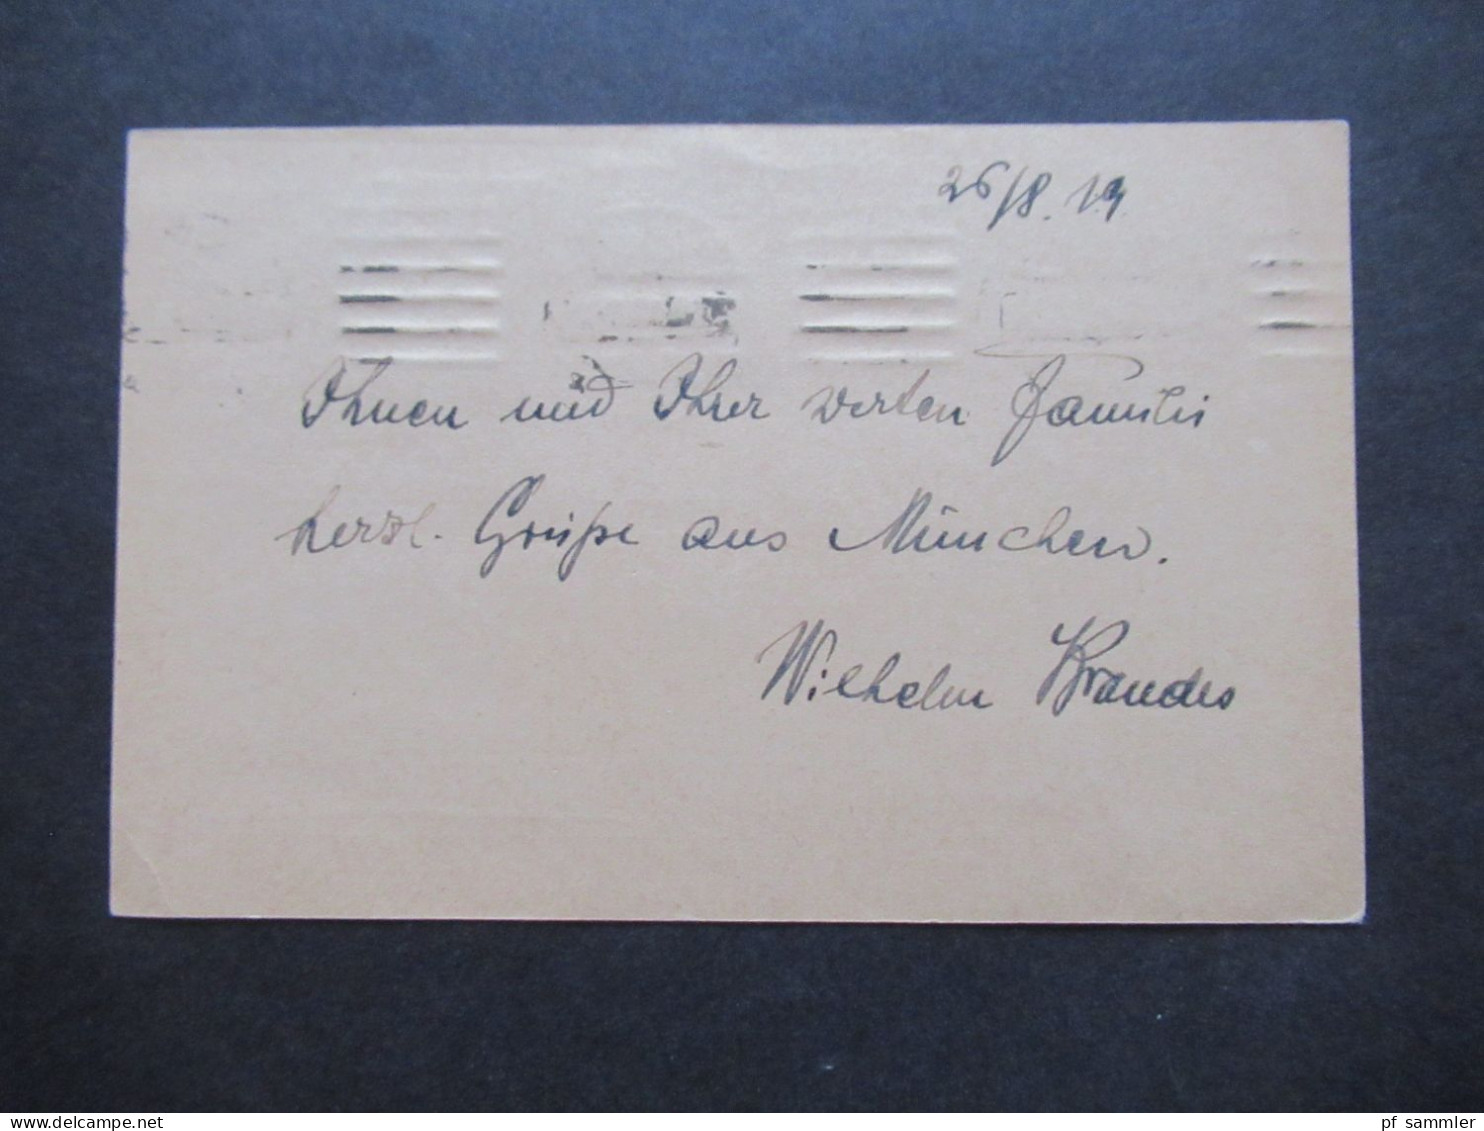 26/8. 19.
Ihnen und Ihrer werten Familie
herzl. Grüße aus München.
Wilhelm Brandes
delcampe.net
pf_sammler